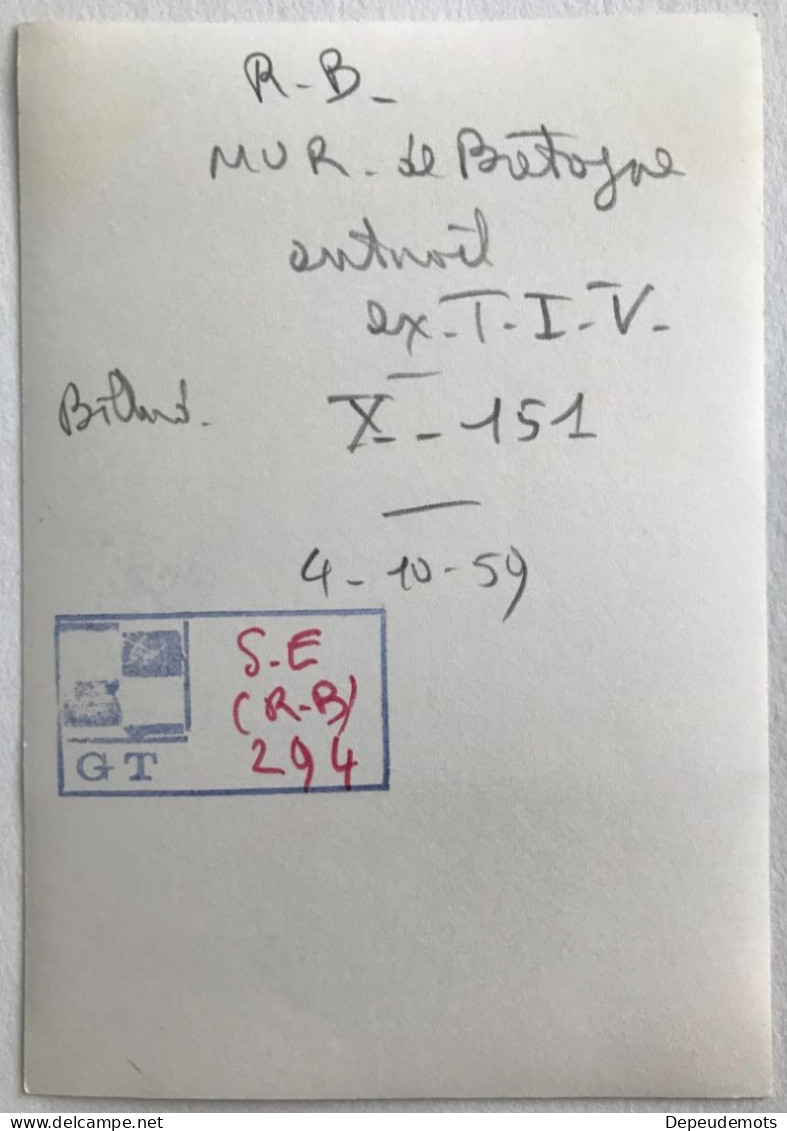 R-B-
MUR-de Bretagne
autorail
ex-T-I-V-
Billard.
X-151
4-10-59
S-E
(R-B)
294
GT
delcampe.net
Depeudemots